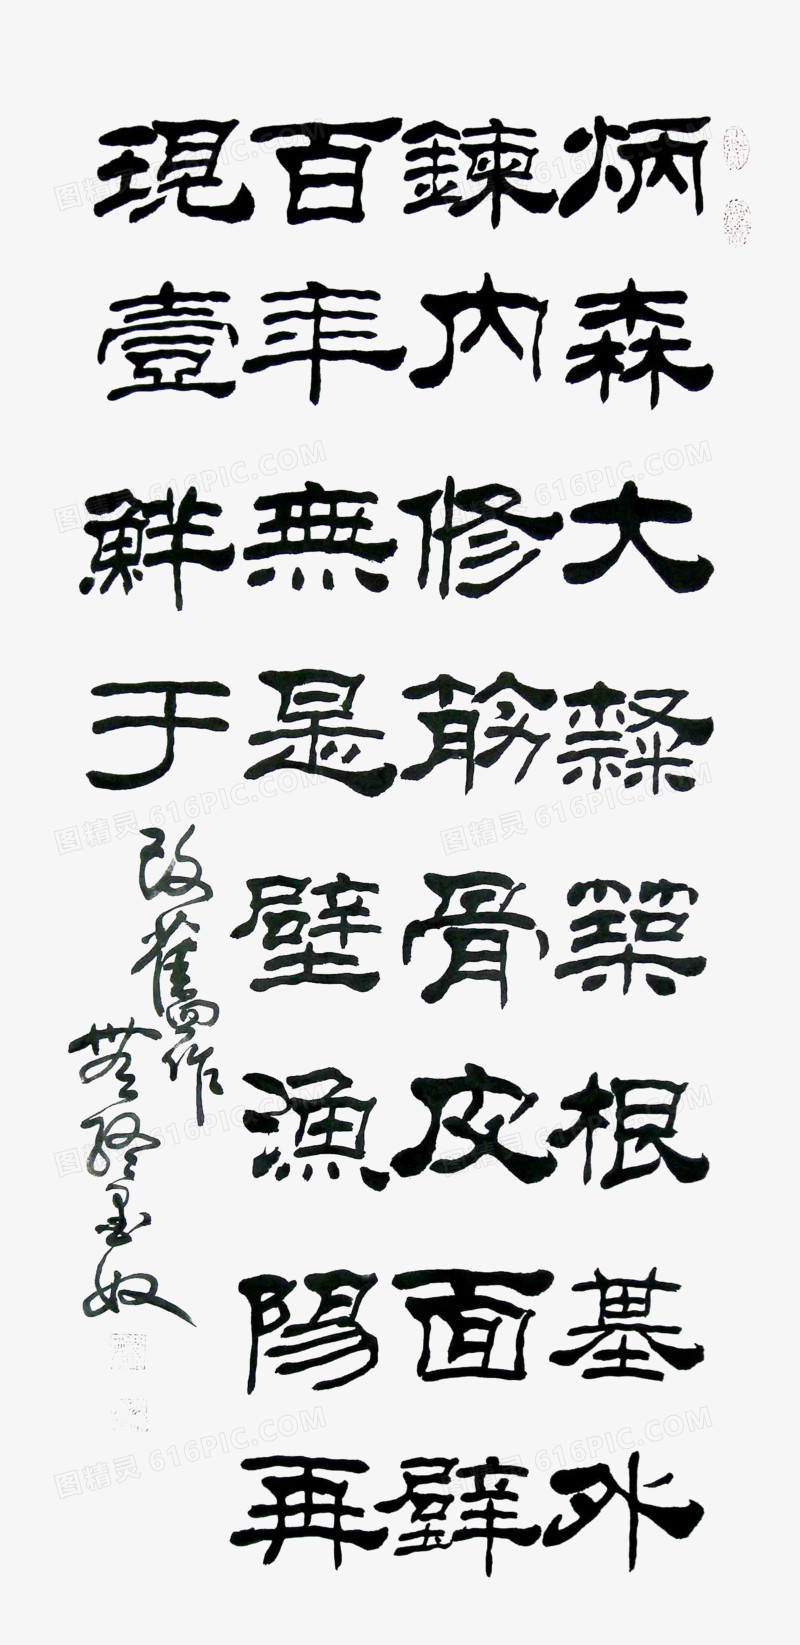 炳森大隸築根基外
鍊內修筋骨皮面壁
百年無是壁漁陽再
現壹鮮于
改舊作
墨奴
图精灵 616PIC.COM